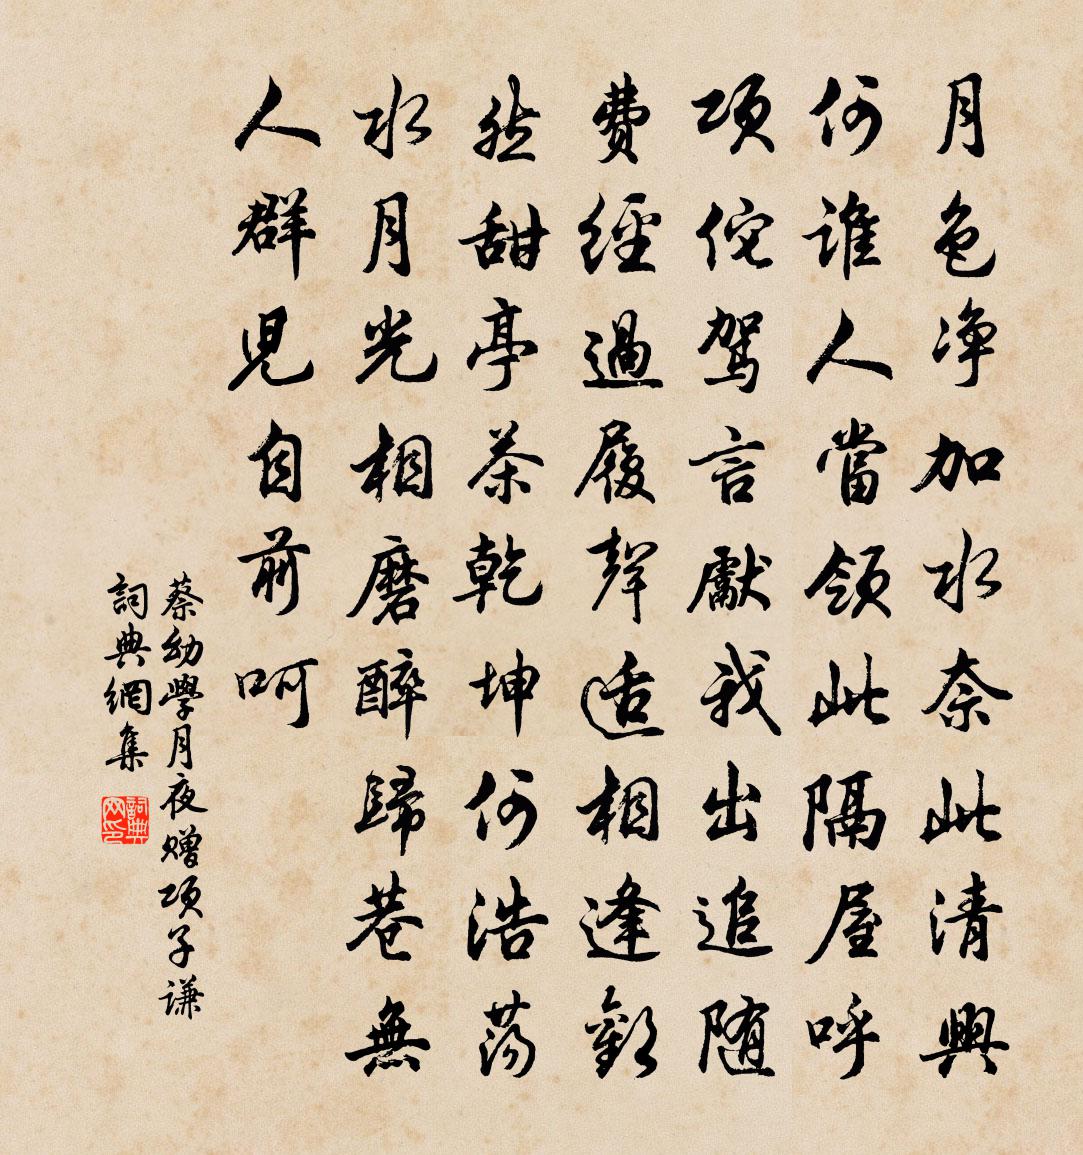 月色净加水奈此清興
何誰人當領此隔屋呼
項侘駕言獻我出追随
費經過履聲适相逢歡
然甜亭茶乾坤何浩荡
水月光相磨醉歸巷無
人群児自前呵
蔡幼學月夜赠項子谦
詞典網集
詞典网印